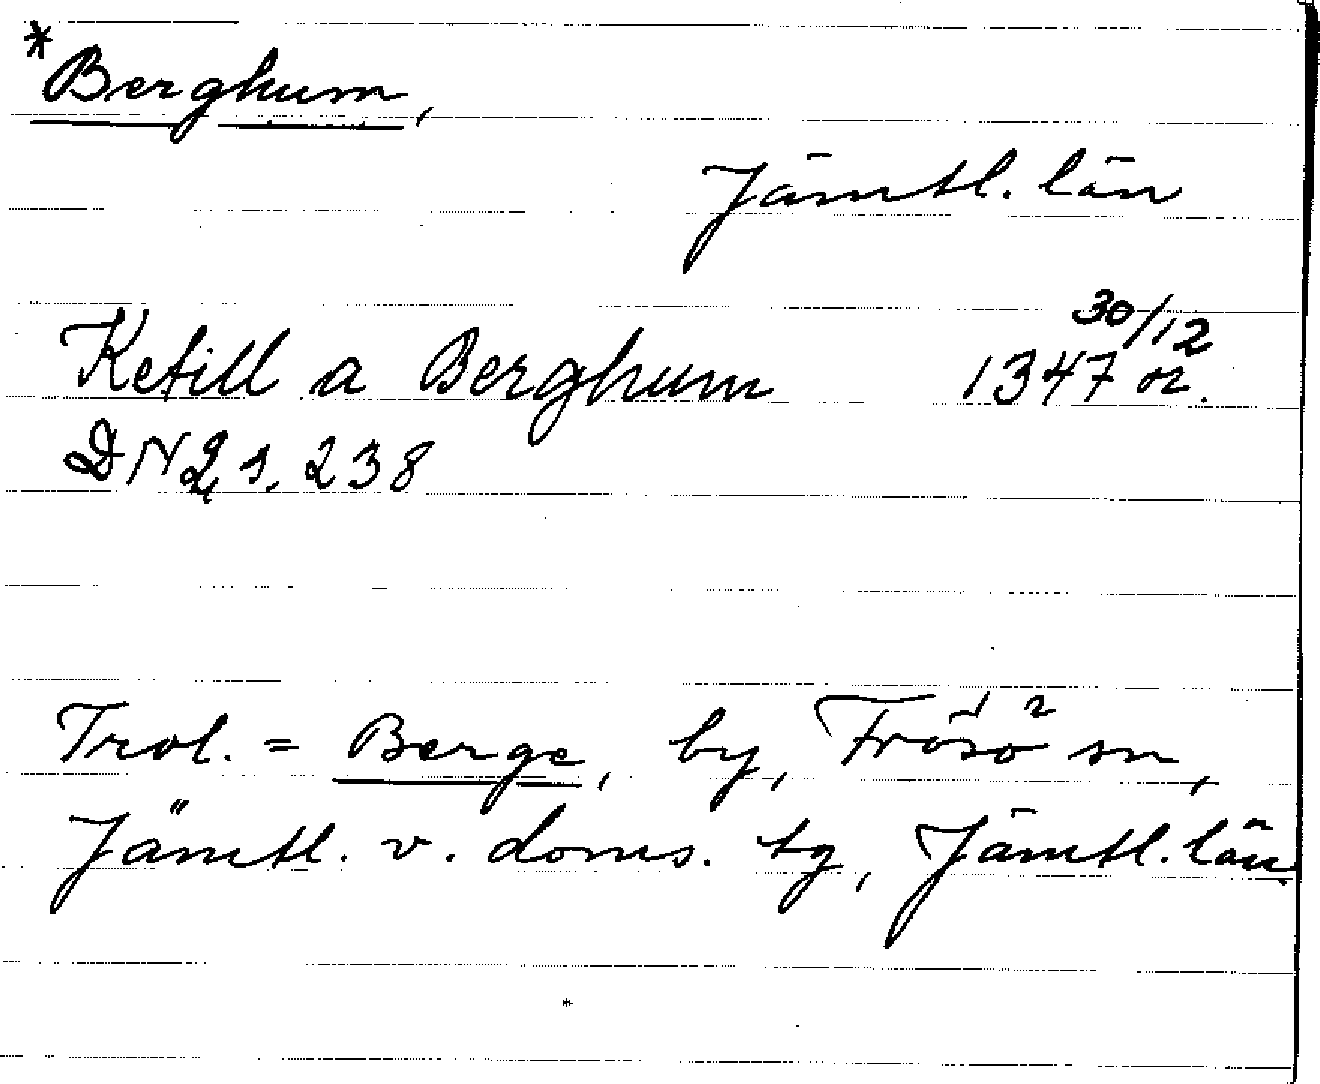 *Berghum,
Jämtl. län
Ketill a Berghum 30/12 1347 or.
DN 2, s. 238
Trol. = Berge, by, Frösö sn,
Jämtl. v. doms. tg, Jämtl. län